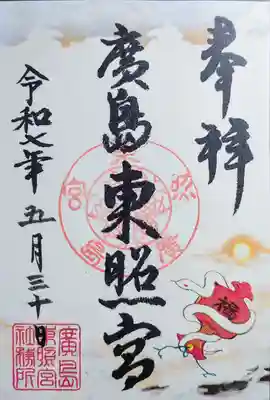 奉拝
廣島東照宮
令和七年五月三十日
廣島
東照宮
社務所
福